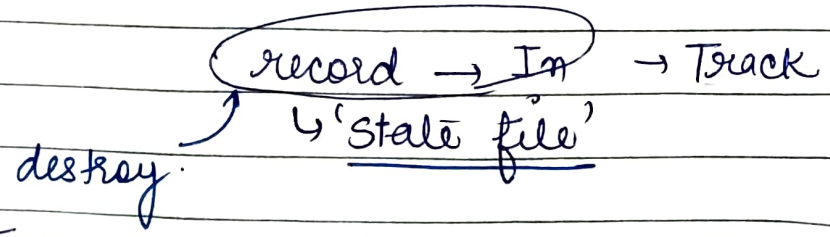 record → In → Track
↳ 'State file'
destroy.